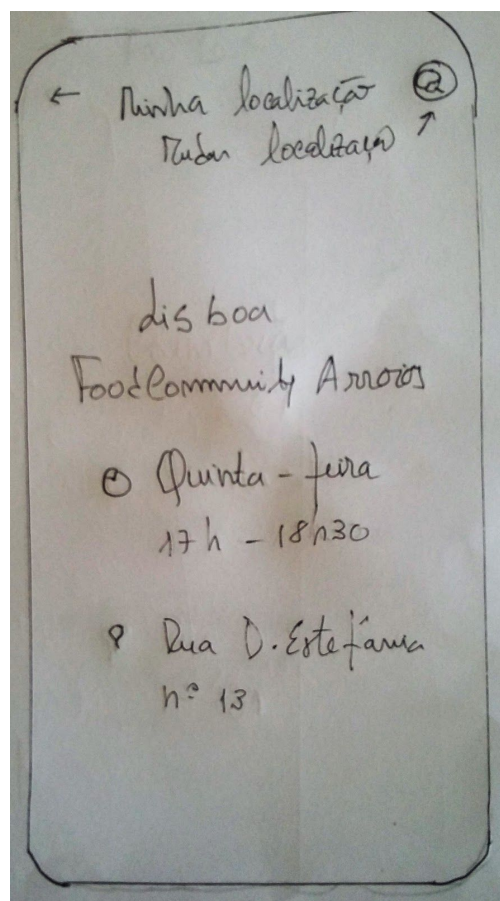 ← Minha localização
Mudar localização
Lisboa
FoodCommunity Arroios
Quinta-feira
17h - 18h30
Rua D. Estefânia
nº 13